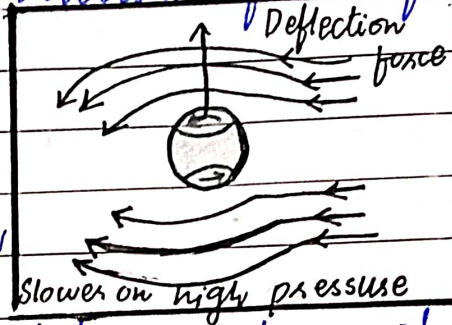 Deflection
force
Slower on high pressure